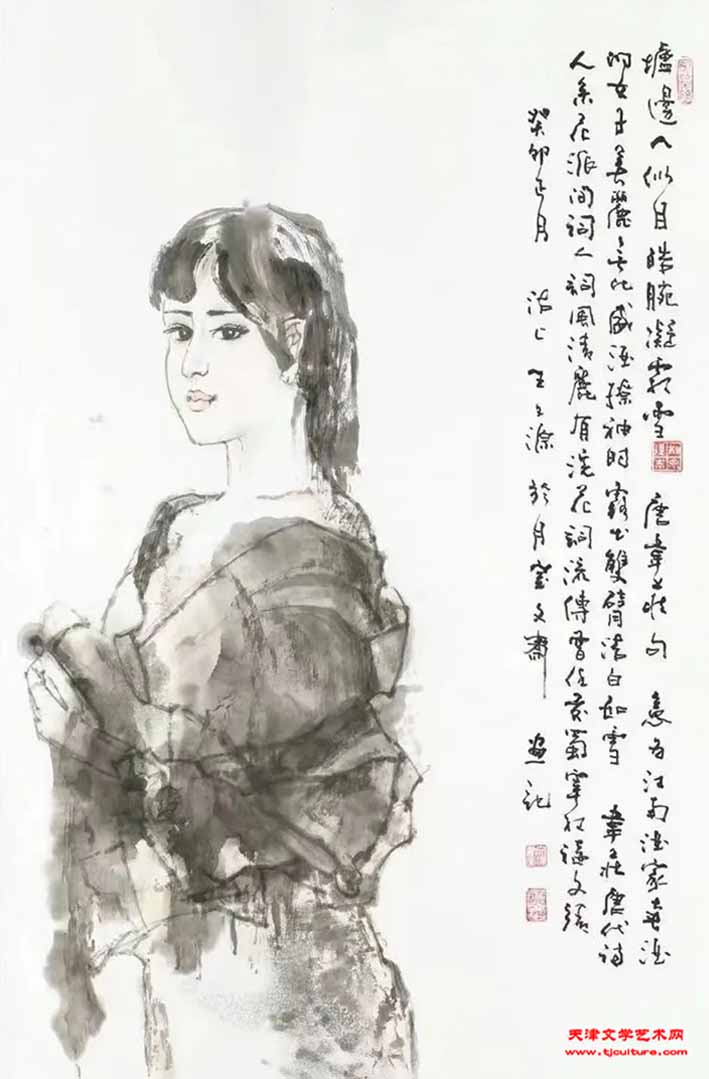 垆邊人似月皓腕凝霜雪 唐韋莊句 意为江南酒家賣酒
的女子美麗無比盛酒撩袖时露出雙臂洁白如雪 韋莊唐代诗
人系花派间詞人詞風清麗有浣花詞流傳曾任前蜀宰相諡文靖
癸卯正月 沽上 王之海 於月窗文齋 画记
天津文学艺术网
www.tjculture.com